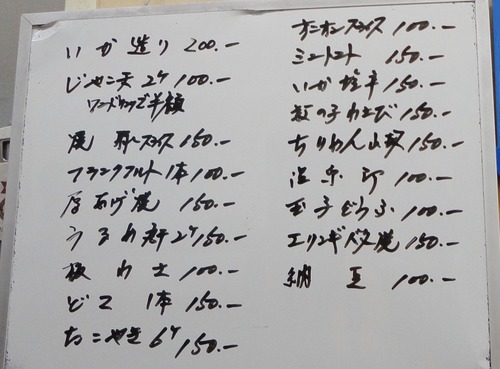 いか造り 200.-
じゃこ天 2ケ 100.-
ワンドリンクで半額
焼豚スライス 150.-
フランクフルト 1本 100.-
厚あげ焼 150.-
うるめ 2ケ 150.-
板わさ 100.-
1本 150.-
たこやき 6ケ 150.-
オニオンスライス 100.-
ミニトマト 150.-
いか塩辛 150.-
数の子わさび 150.-
ちりめん山椒 150.-
温泉卵 100.-
玉子どうふ 100.-
エリンギバター焼 150.-
納豆 100.-